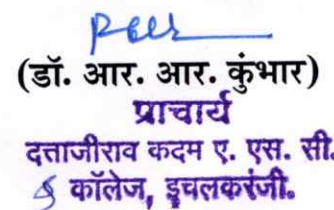 (डॉ. आर. आर. कुंभार)
प्राचार्य
दत्ताजीराव कदम ए. एस. सी.
कॉलेज, इचलकरंजी.